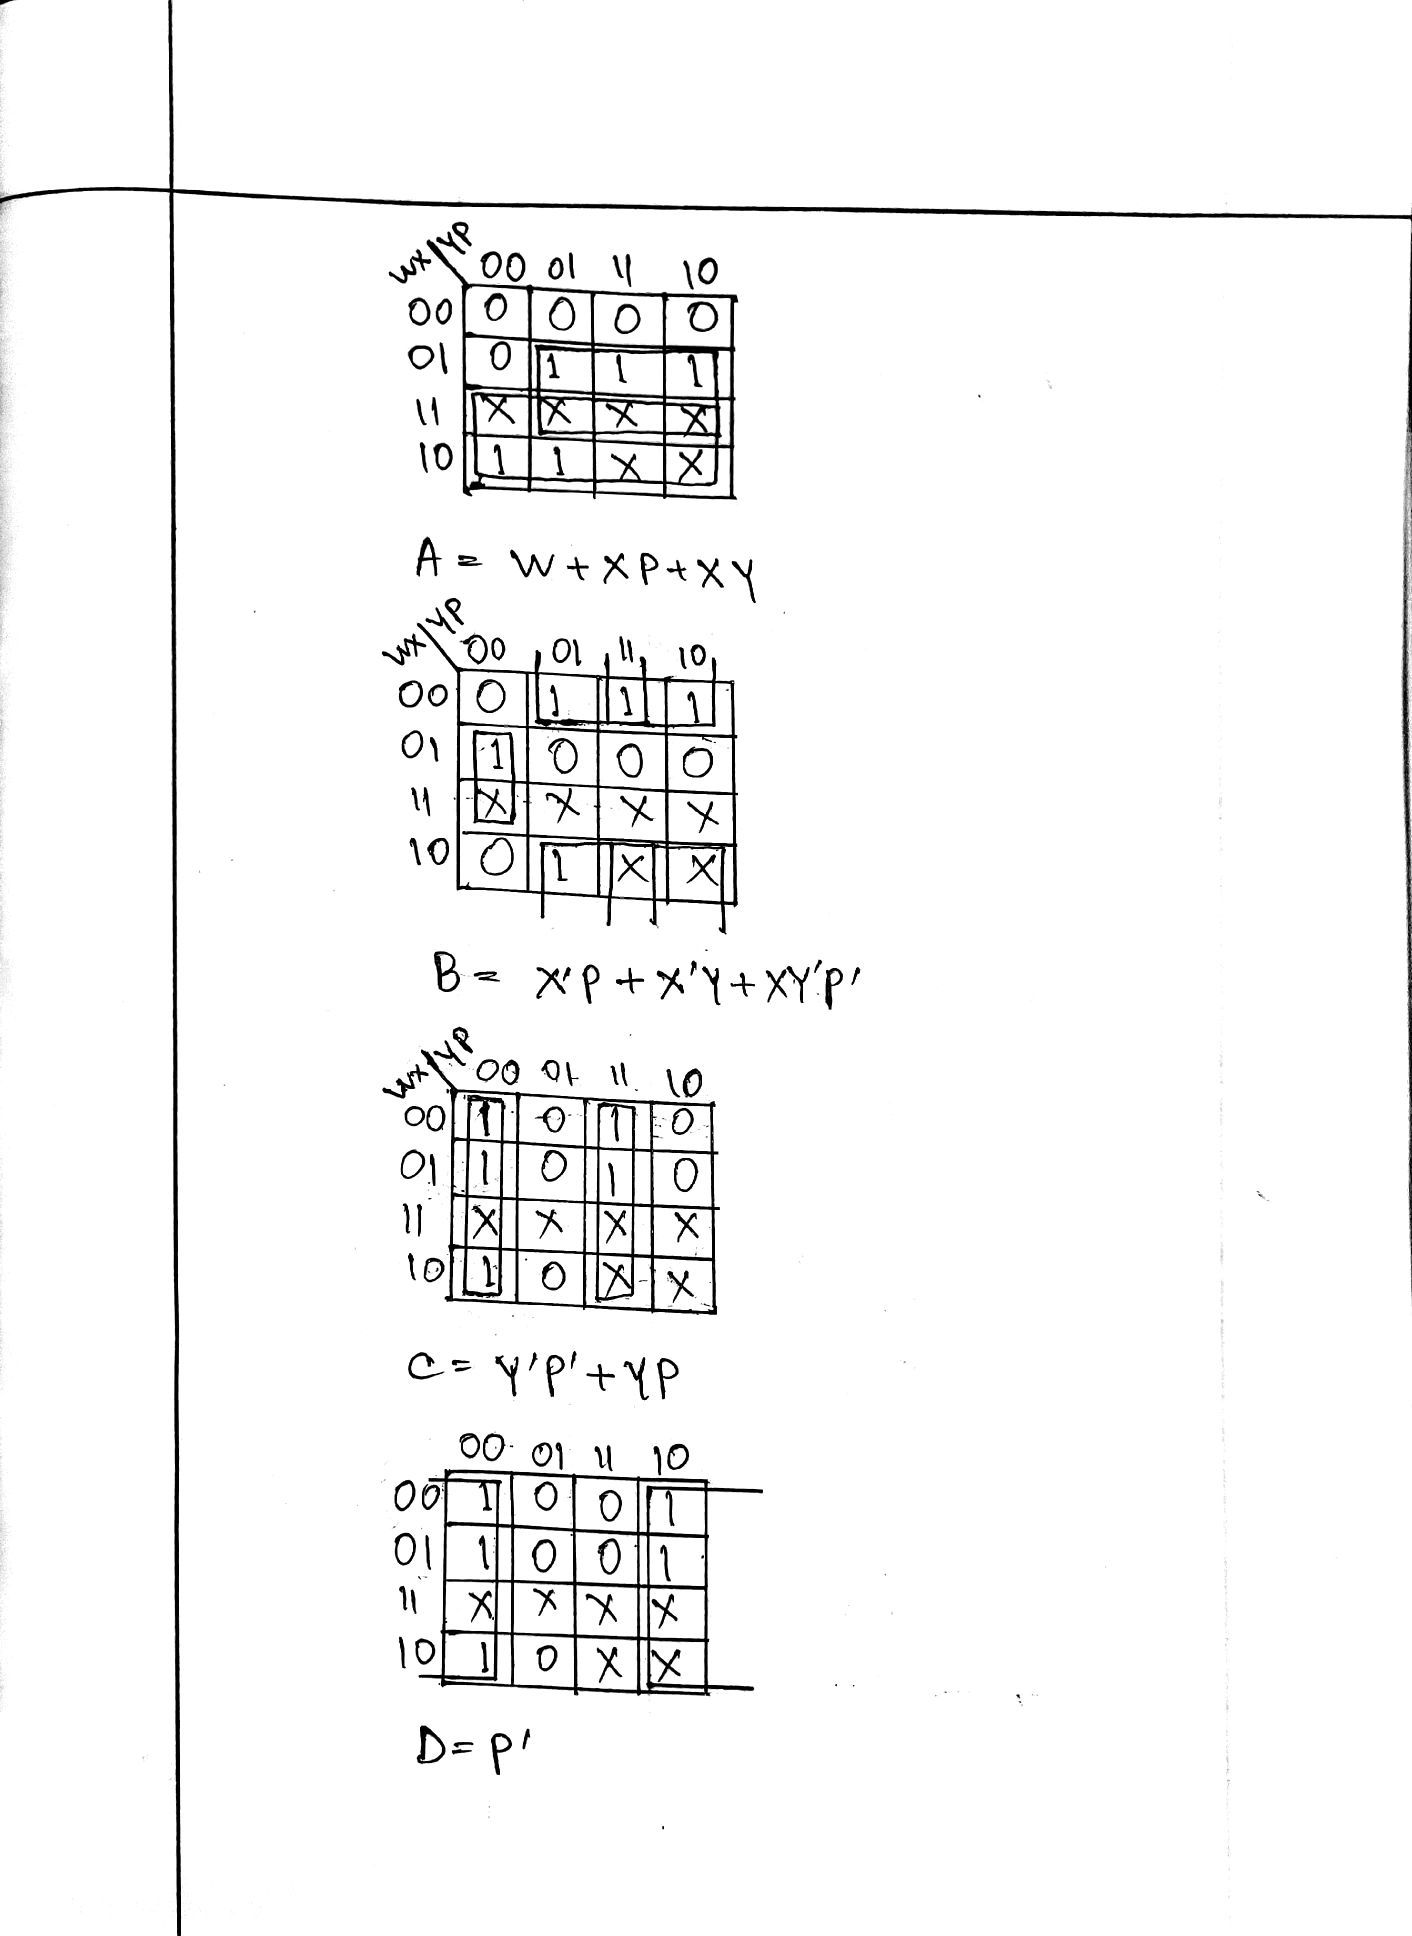 WX/YP 00 01 11 10
00 0 0 0 0
01 0 1 1 1
11 X X X X
10 1 1 X X
A = W + XP + XY
WX/YP 00 01 11 10
00 0 1 1 1
01 1 0 0 0
11 X X X X
10 0 1 X X
B = X'P + X'Y + XY'P'
WX/YP 00 01 11 10
00 1 0 1 0
01 1 0 1 0
11 X X X X
10 1 0 X X
C = Y'P' + YP
00 01 11 10
00 1 0 0 1
01 1 0 0 1
11 X X X X
10 1 0 X X
D = P'